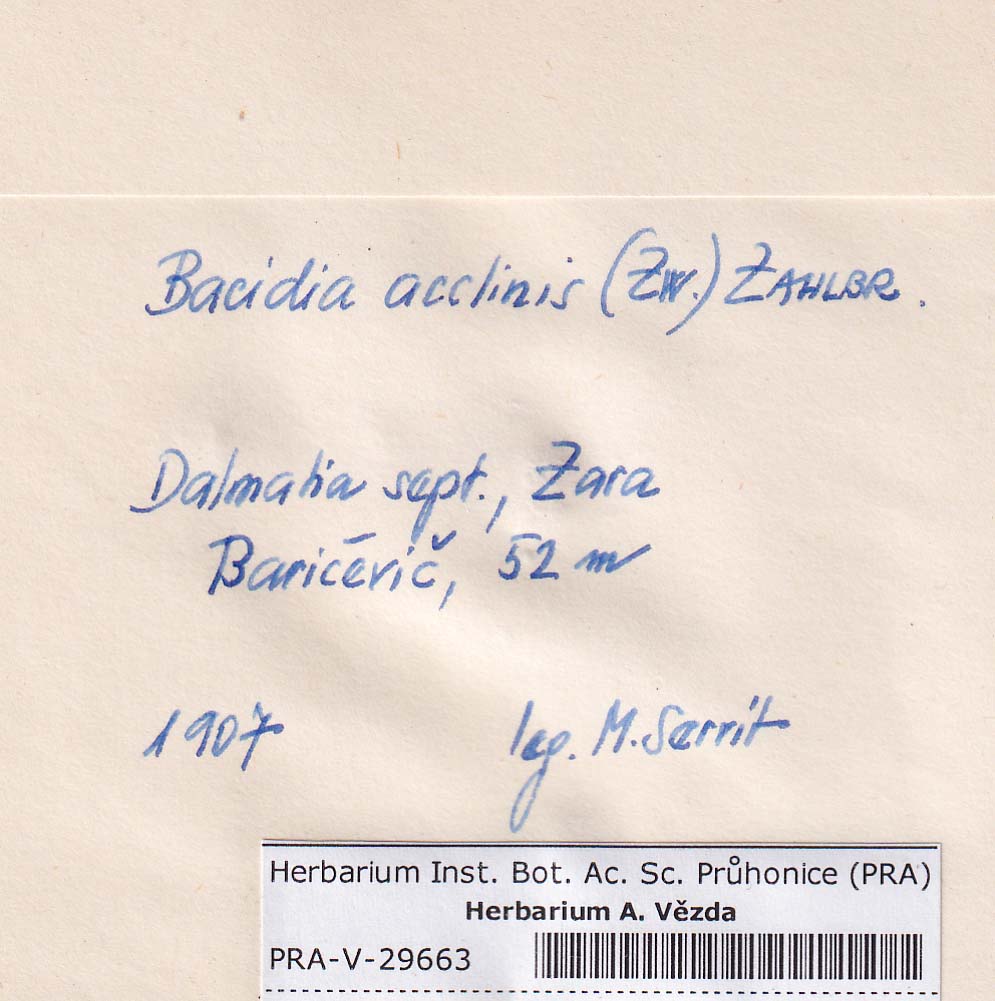 Bacidia acclinis (Zw.) ZAHLBR.
Dalmatia sept., Zara
Baricēvič, 52 m
1907 leg. M.
Herbarium Inst. Bot. Ac. Sc. Průhonice (PRA)
Herbarium A. Vězda
PRA-V-29663